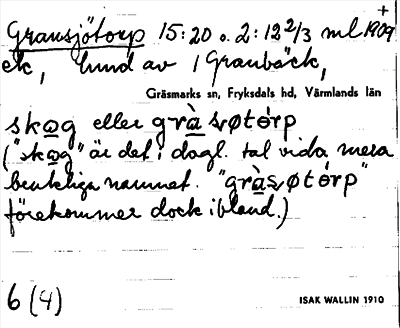 +
Gransjötorp 15:20 o. 2:12 2/3 ml 1909
ek, hund av / Granbäck,
Gräsmarks sn, Fryksdals hd, Värmlands län
skog eller gràsøtórp
("skog" är det i dagl. tal vida mera
brukliga namnet. "gràsøtórp"
förekommer dock ibland.)
6 (4)
ISAK WALLIN 1910